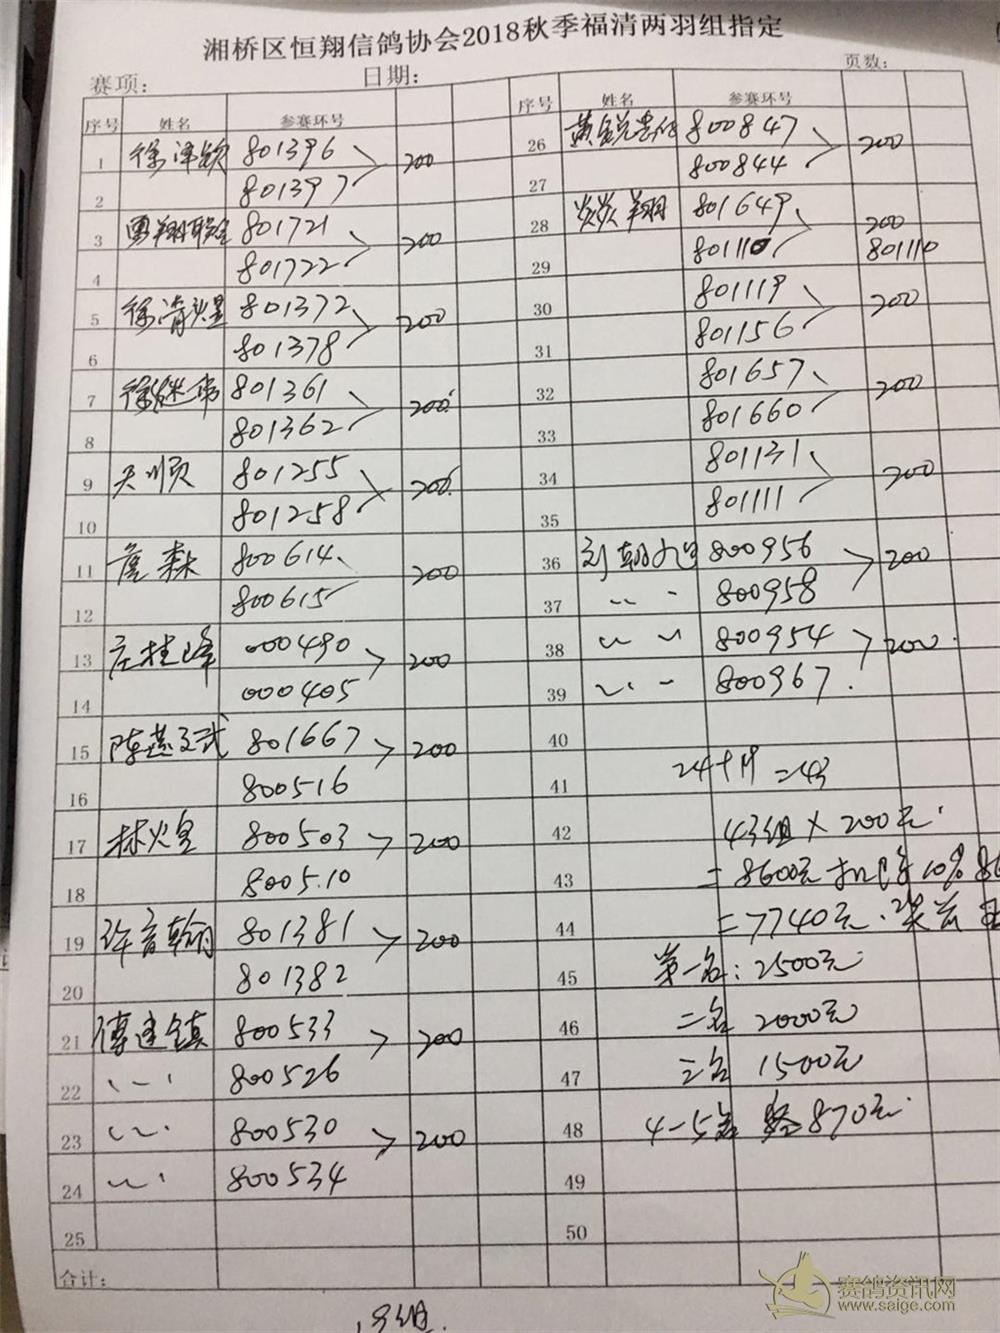 湘桥区恒翔信鸽协会2018秋季福清两羽组指定
赛项: 日期: 页数:
序号 姓名 参赛环号
1 徐泽钦 801396 200
2 801397
3 勇翔联合 801721 200
4 801722
5 徐清煌 801372 200
6 801378
7 徐继伟 801361 200
8 801362
9 天顺 801255 200
10 801258
11 詹森 800614 200
12 800615
13 庄桂峰 000490 200
14 000405
15 陈燕文武 801667 200
16 800516
17 林火皇 800503 200
18 800510
19 许音翰 801381 200
20 801382
21 傅建镇 800533 200
22 〃 800526
23 〃 800530 200
24 〃 800534
25
合计:
序号 姓名 参赛环号
26 800847 200
27 800844
28 炎炎翔 801649 200
29 801110 801110
30 801119 200
31 801156
32 801657 200
33 801660
34 801131 200
35 801111
36 刘朝旭 800956 200
37 〃 〃 800958
38 〃 〃 800954 200
39 〃 〃 800967
40
41 24+19=43
42 43组×200元
43 =8600元扣除10% 86
44 =7740元.奖
45 第一名:2500元
46 二名 2000元
47 三名 1500元
48 4-5名 各870元
49
50
19组
赛鸽资讯网
www.saige.com